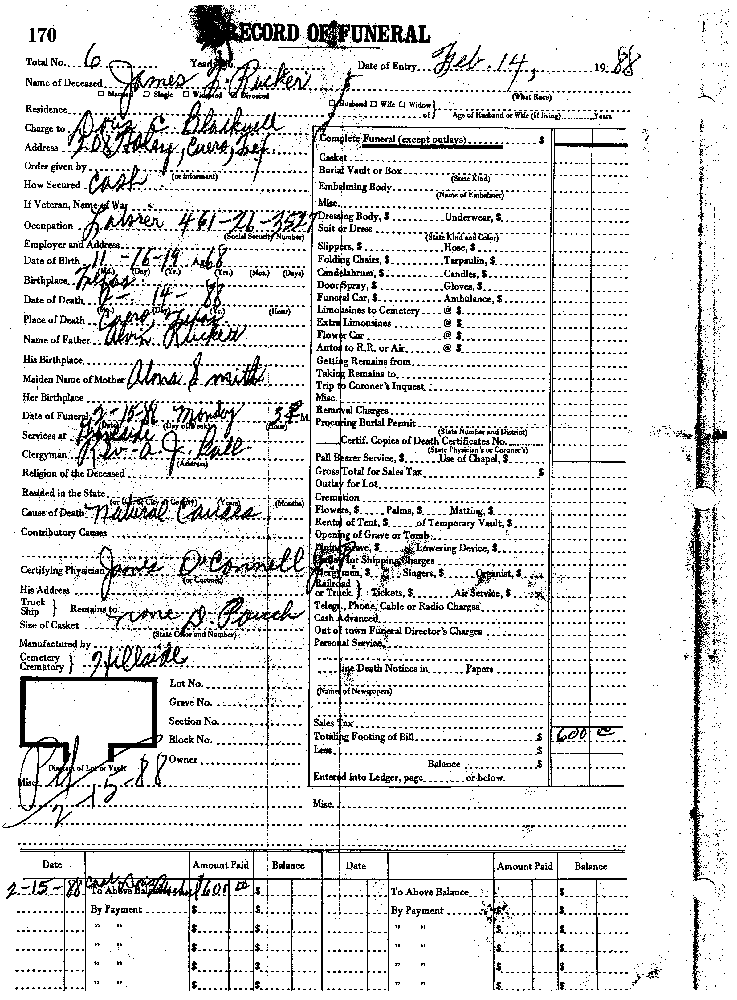 170 RECORD OF FUNERAL
Total No. 6 Year Date of Entry Feb. 14, 19 88
Name of Deceased James Rucker
Married Single Widowed Divorced (What Race)
Husband Wife Widow of Age of Husband or Wife (if living) Years
Residence
Charge to Doris C. Blackwell
Address 208 Cuero, Tex
Order given by
(or informant)
How Secured Cash
If Veteran, Name of War
Occupation Laborer 461-26-3527
(Social Security Number)
Employer and Address
Date of Birth 11-16-19 Age 68
(Mo.) (Day) (Yr.) (Yrs.) (Mos.) (Days)
Birthplace Texas
Date of Death 2-14-88
(Hour)
Place of Death Cuero Texas
Name of Father Alvin Rucker
His Birthplace
Maiden Name of Mother Alma Smith
Her Birthplace
Date of Funeral 2-15-88 Monday 3 P M.
Services at Hillside
(Address)
Clergyman Rev. A. J.
Religion of the Deceased
Resided in the State
(Years) (Months)
Cause of Death Natural Causes
Contributory Causes
Certifying Physician James O'Connell
(or Coroner)
His Address
Truck Ship } Remains to
Size of Casket Pouch
(State Color and Number)
Manufactured by
Cemetery Crematory } Hillside
Lot No.
Grave No.
Section No.
Block No.
Owner
Diagram of Lot or Vault
Misc. Pd 2-15-88
Complete Funeral (except outlays) $
Casket
Burial Vault or Box
(State Kind)
Embalming Body
(Name of Embalmer)
Misc.
Dressing Body, $ Underwear, $
Suit or Dress
(State Kind and Color)
Slippers, $ Hose, $
Folding Chairs, $ Tarpaulin, $
Candelabrum, $ Candles, $
Door Spray, $ Gloves, $
Funeral Car, $ Ambulance, $
Limousines to Cemetery @ $
Extra Limousines @ $
Flower Car @ $
Autos to R.R. or Air @ $
Getting Remains from
Taking Remains to
Trip to Coroner's Inquest
Misc.
Removal Charges
Procuring Burial Permit
(State Number and District)
Certif. Copies of Death Certificates No.
(State Physician's or Coroner's)
Pall Bearer Service, $ Use of Chapel, $
Gross Total for Sales Tax $
Outlay for Lot
Cremation
Flowers, $ Palms, $ Matting, $
Rental of Tent, $ of Temporary Vault, $
Opening of Grave or Tomb
Lining Grave, $ Lowering Device, $
Outlay for Shipping Charges
Clergyman, $ Singers, $ Organist, $
Railroad or Truck } Tickets, $ Air Service, $
Telegr., Phone, Cable or Radio Charges
Cash Advanced
Out of town Funeral Director's Charges
Personal Service
Line Death Notices in Papers
(Name of Newspapers)
Sales Tax
Totaling Footing of Bill $ 600 00
Less $
Balance $
Entered into Ledger, page or below.
Misc.
Date Amount Paid Balance Date Amount Paid Balance
2-15-88 To Above Balance 600 00 $ To Above Balance $ $
By Payment $ $ By Payment $ $
" " $ $ " " $ $
" " $ $ " " $ $
" " $ $ " " $ $
" " $ $ " " $ $